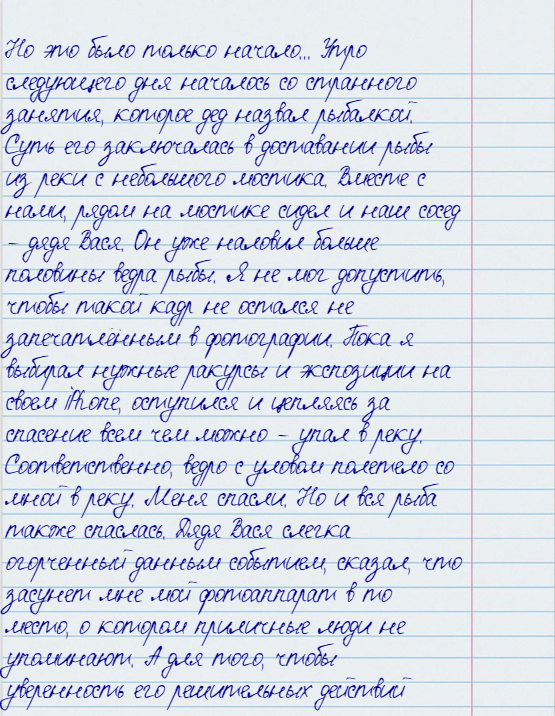 Но это было только начало... Утро
следующего дня началось со странного
занятия, которое дед назвал рыбалкой.
Суть его заключалась в доставании рыбы
из реки с небольшого мостика. Вместе с
нами, рядом на мостике сидел и наш сосед
- дядя Вася. Он уже наловил больше
половины ведра рыбы. Я не мог допустить,
чтобы такой кадр не остался не
запечатлённым в фотографии. Пока я
выбирал нужные ракурсы и экспозиции на
своем iPhone, оступился и цепляясь за
спасение всем чем можно - упал в реку.
Соответственно, ведро с уловом полетело со
мной в реку. Меня спасли. Но и вся рыба
также спаслась. Дядя Вася слегка
огорченный данным событием, сказал, что
засунет мне мой фотоаппарат в то
место, о котором приличные люди не
упоминают. А для того, чтобы
уверенность его решительных действий